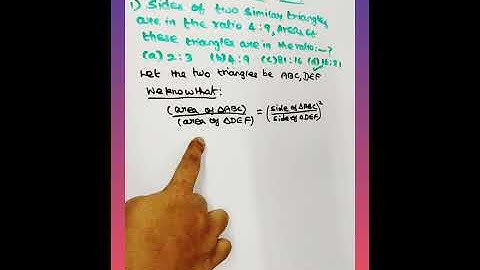 1) Sides of two similar triangles
are in the ratio 4:9, Areas of
these triangles are in the ratio:-?
(a) 2:3 (b) 4:9 (c) 81:16 (d) 16:81
Let the two triangles be ABC, DEF
We know that:
(area of ΔABC) / (area of ΔDEF) = (side of ΔABC / side of ΔDEF)²